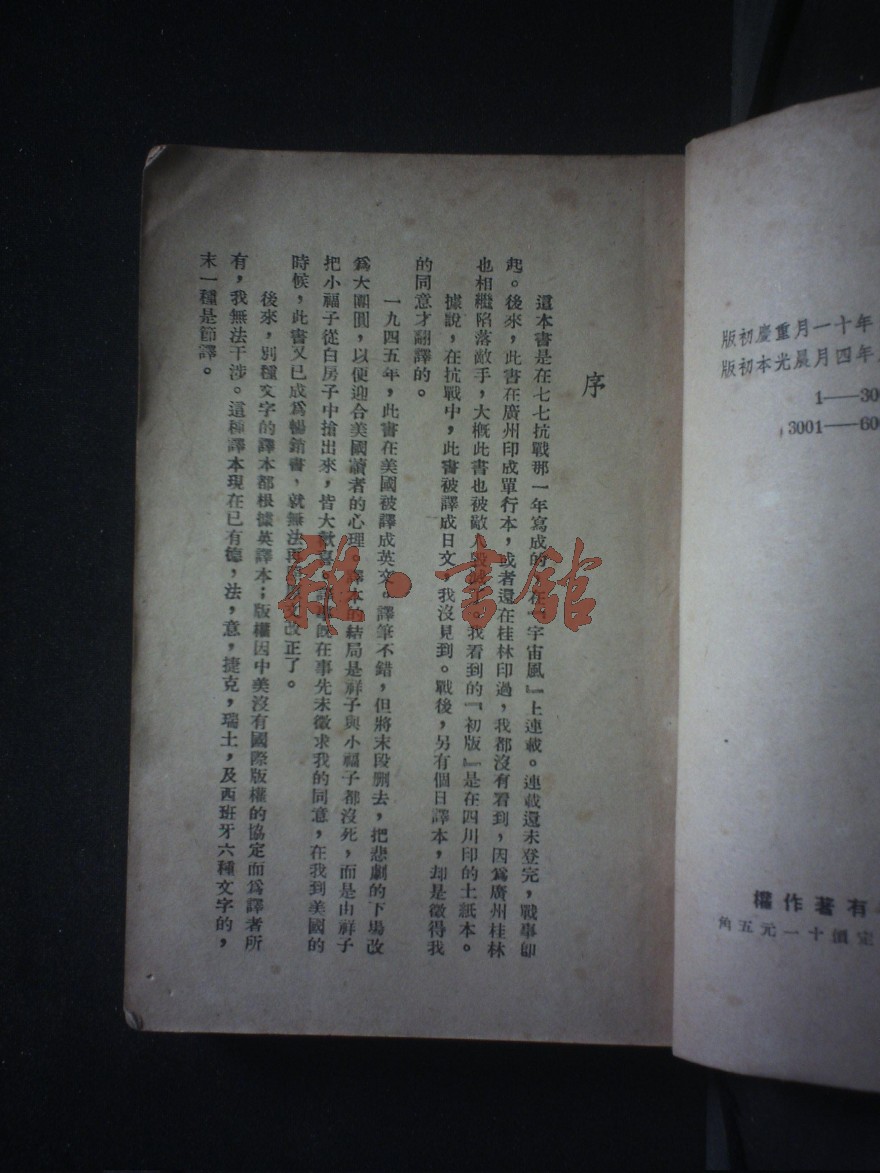 序
這本書是在七七抗戰那一年寫成的，在『宇宙風』上連載。連載還未登完，戰事即
起。後來，此書在廣州印成單行本，或者還在桂林印過，我都沒有看到，因爲廣州桂林
也相繼陷落敵手，大概此書也被敵人毀。我看到的『初版』是在四川印的土紙本。
據說，在抗戰中，此書被譯成日文，我沒見到。戰後，另有個日譯本，却是徵得我
的同意才翻譯的。
一九四五年，此書在美國被譯成英文。譯筆不錯，但將末段删去，把悲劇的下場改
爲大團圓，以便迎合美國讀者的心理。譯本的結局是祥子與小福子都沒死，而是由祥子
把小福子從白房子中搶出來，皆大歡喜。譯者旣在事先未徵求我的同意，在我到美國的
時候，此書又已成爲暢銷書，就無法再改正了。
後來，別種文字的譯本都根據英譯本；版權因中美沒有國際版權的協定而爲譯者所
有，我無法干涉。這種譯本現在已有德，法，意，捷克，瑞士，及西班牙六種文字的，
末一種是節譯。
年十一月重慶初版
年四月晨光本初版
1——30
3001——60
有著作權
定價十一元五角
雜·書館